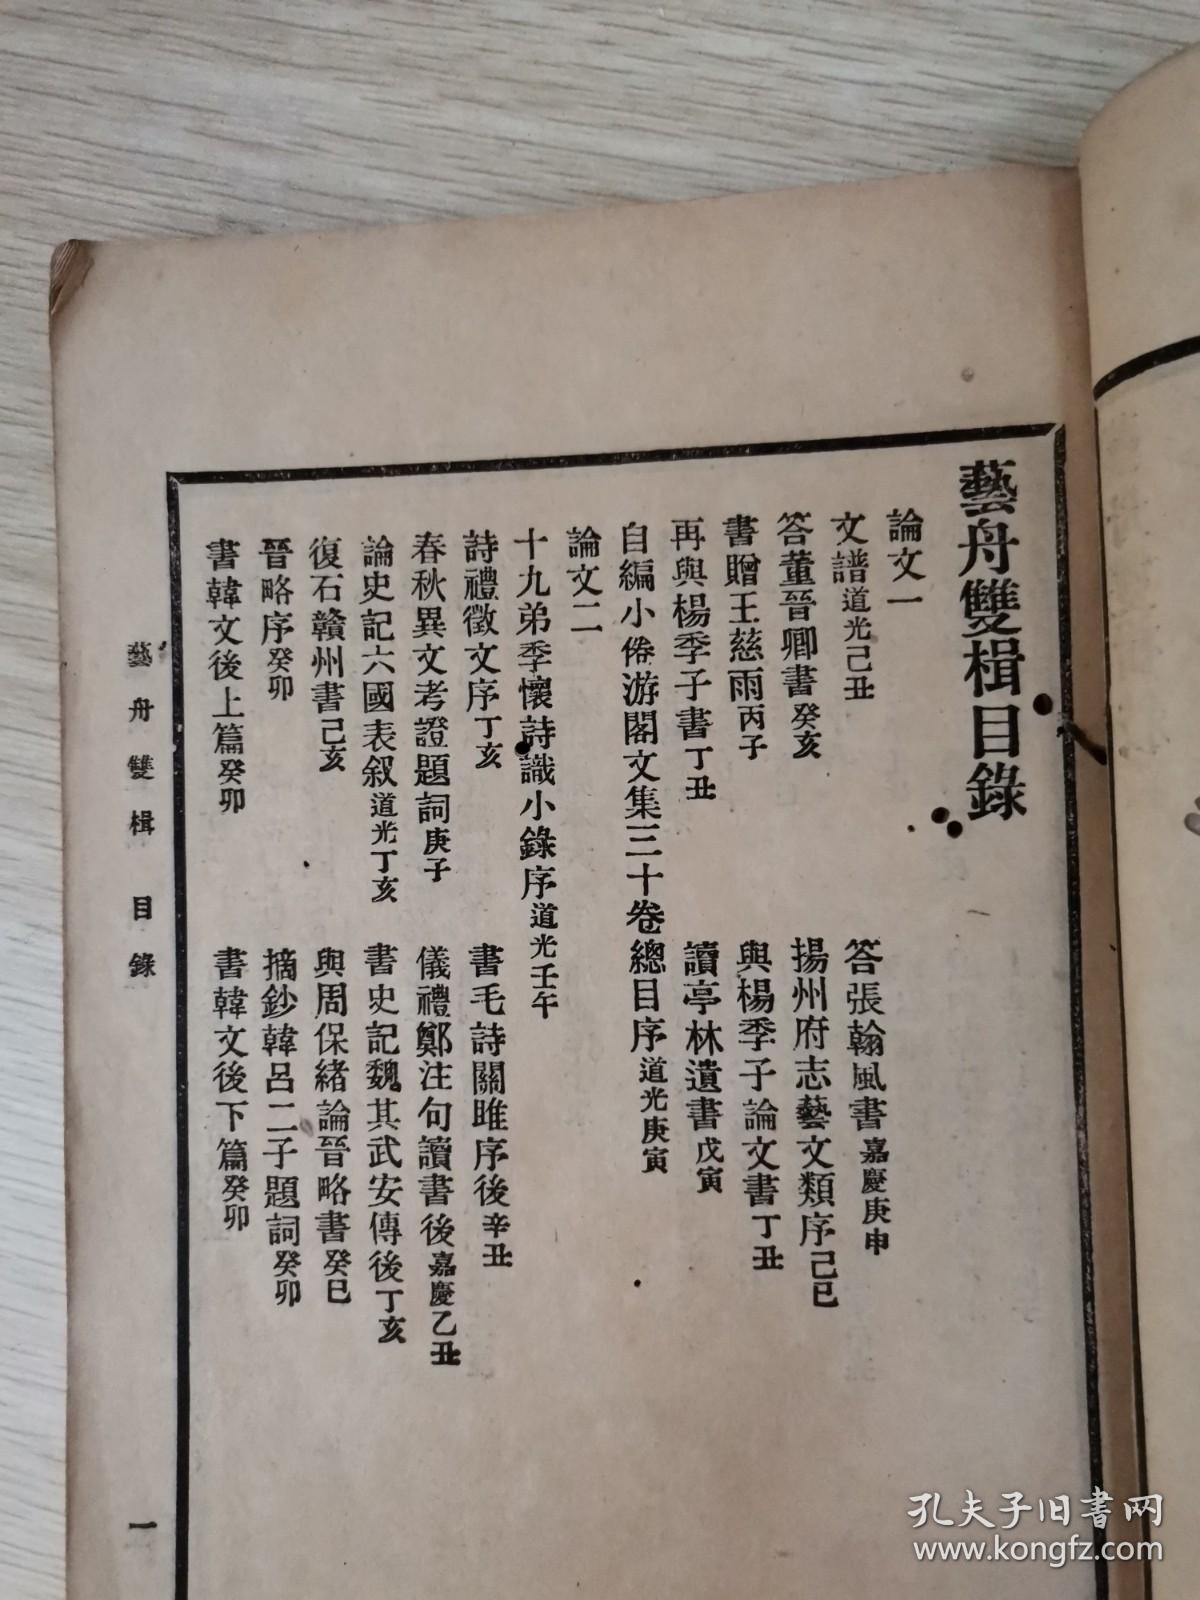 藝舟雙楫目錄
論文一
文譜道光己丑
答張翰風書嘉慶庚申
答董晉卿書癸亥
揚州府志藝文類序己巳
書贈王慈雨丙子
與楊季子論文書丁丑
再與楊季子書丁丑
讀亭林遺書戊寅
自編小倦游閣文集三十卷總目序道光庚寅
論文二
十九弟季懷詩識小錄序道光壬午
詩禮徵文序丁亥
書毛詩關雎序後辛丑
春秋異文考證題詞庚子
儀禮鄭注句讀書後嘉慶乙丑
論史記六國表叙道光丁亥
書史記魏其武安傳後丁亥
復石贛州書己亥
與周保緒論晉略書癸巳
晉略序癸卯
摘鈔韓呂二子題詞癸卯
書韓文後上篇癸卯
書韓文後下篇癸卯
藝舟雙楫 目錄
一
孔夫子旧书网
www.kongfz.com